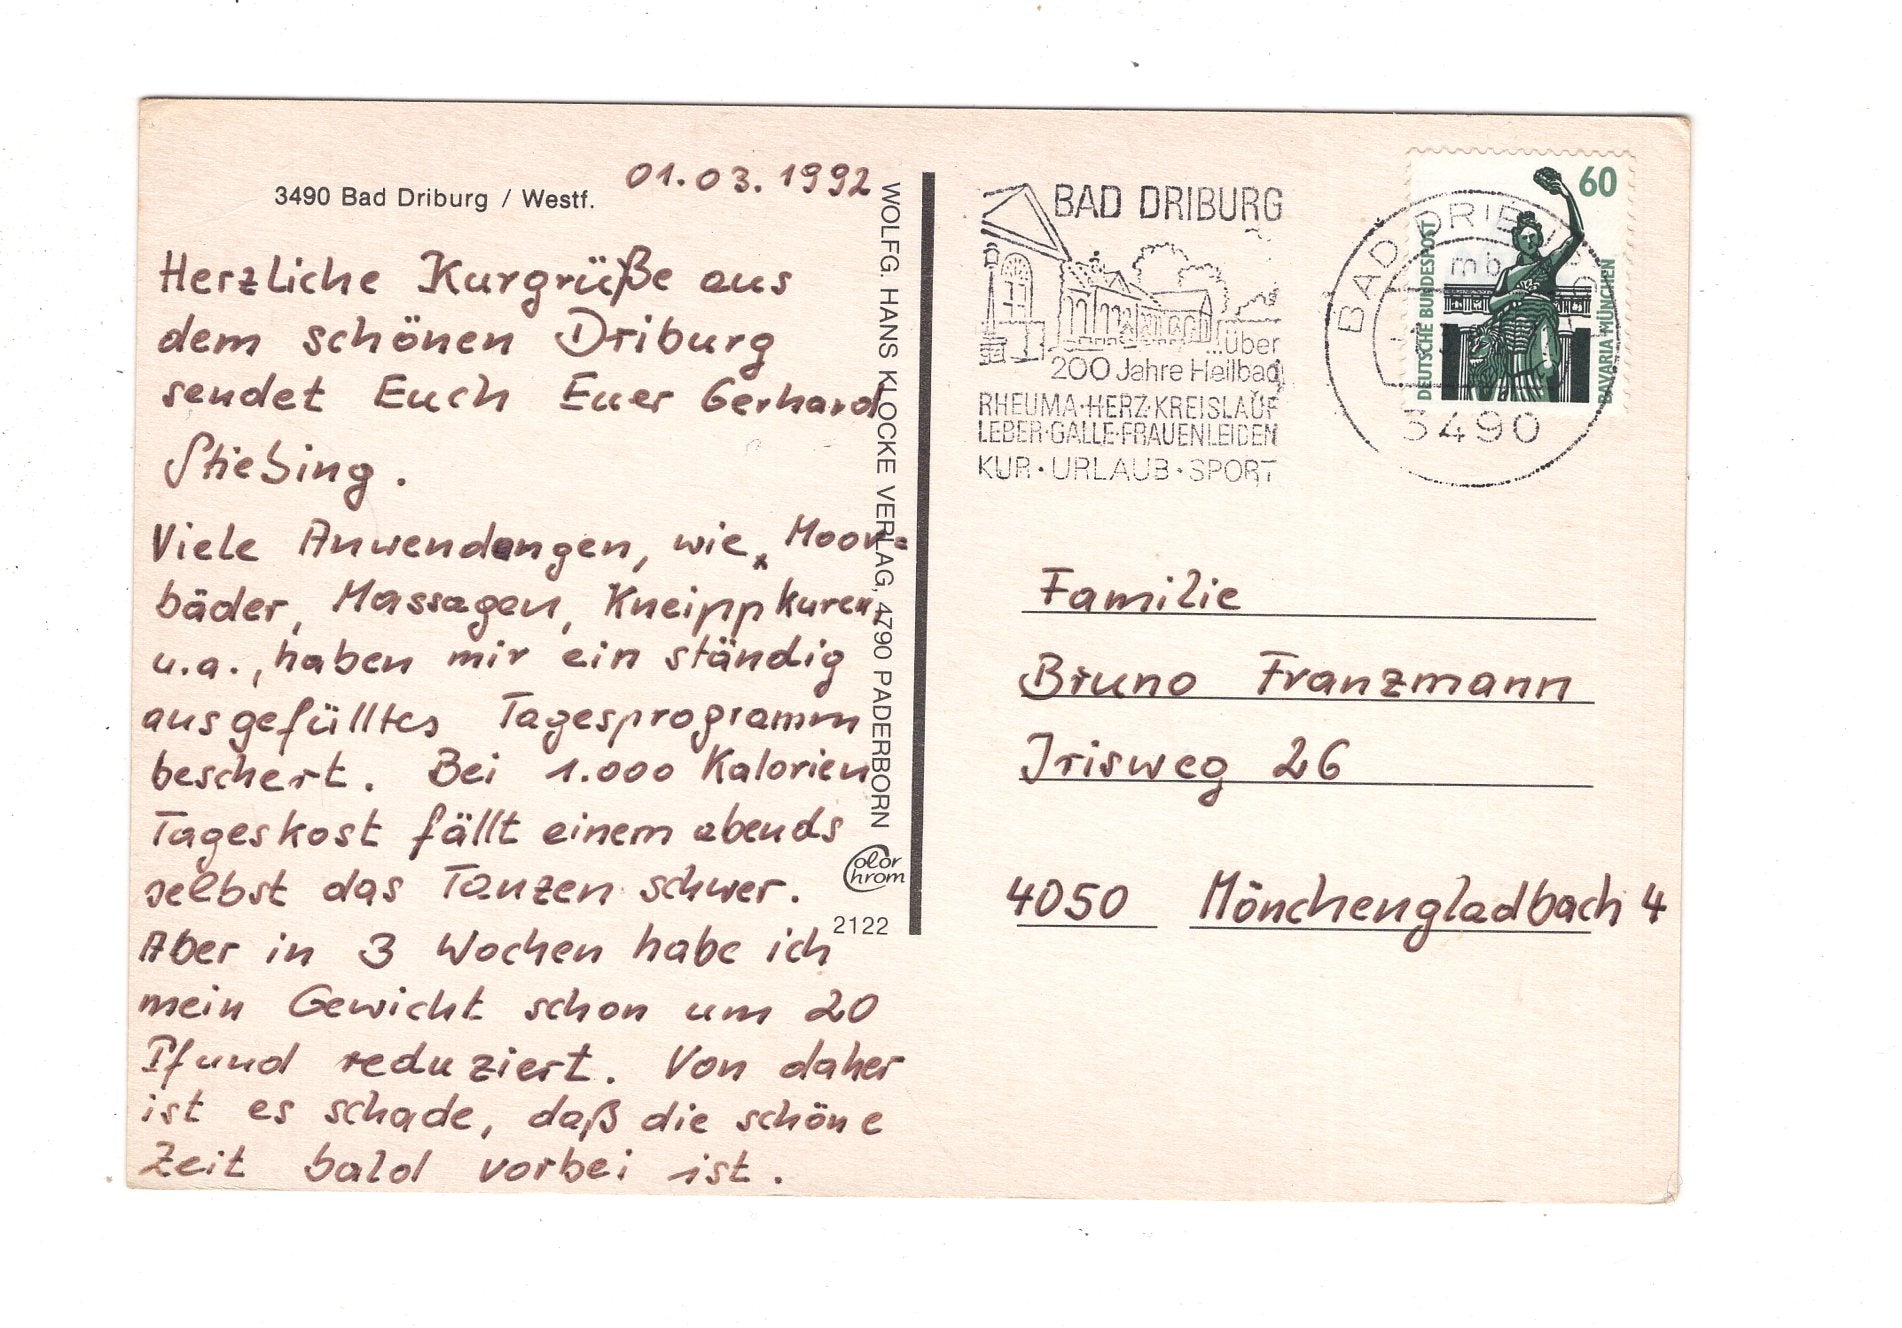 3490 Bad Driburg / Westf.
01.03.1992
Herzliche Kurgrüße aus
dem schönen Driburg
sendet Euch Euer Gerhard
Stiebing.
Viele Anwendungen, wie, Moor=
bäder, Massagen, Kneippkuren,
u.a., haben mir ein ständig
ausgefülltes Tagesprogramm
beschert. Bei 1.000 Kalorien
Tageskost fällt einem abends
selbst das Tanzen schwer.
Aber in 3 Wochen habe ich
mein Gewicht schon um 20
Pfund reduziert. Von daher
ist es schade, daß die schöne
Zeit bald vorbei ist.
WOLFG. HANS KLOCKE VERLAG, 4790 PADERBORN
Color
Chrom
2122
BAD DRIBURG
...über
200 Jahre Heilbad
RHEUMA·HERZ·KREISLAUF
LEBER·GALLE·FRAUENLEIDEN
KUR·URLAUB·SPORT
BAD DRIBURG
mb
3490
60
DEUTSCHE BUNDESPOST
BAVARIA MÜNCHEN
Familie
Bruno Franzmann
Irisweg 26
4050 Mönchengladbach 4